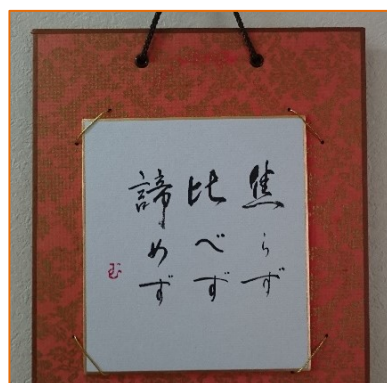 焦らず
比べず
諦めず